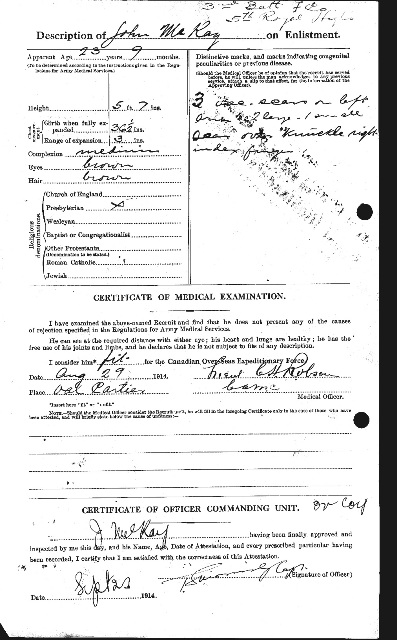 3rd Batt F Co
5th Royal
Description of John McKay on Enlistment.
Apparent Age 23 years 9 months.
(To be determined according to the instructions given in the Regulations for Army Medical Services.)
Distinctive marks, and marks indicating congenital peculiarities or previous disease.
(Should the Medical Officer be of opinion that the recruit has served before, he will, unless the man acknowledges to any previous service, attach a slip to that effect, for the information of the Approving Officer.)
Height 5 ft. 7 ins.
Chest measurement
Girth when fully expanded 36½ ins.
Range of expansion 3 ins.
Complexion medium
Eyes brown
Hair brown
3 vac. scars on left
arm 2 large 1 small
scar over knuckle right
index finger
Religious denominations.
Church of England
Presbyterian x
Wesleyan
Baptist or Congregationalist
Other Protestants
(Denomination to be stated.)
Roman Catholic
Jewish
CERTIFICATE OF MEDICAL EXAMINATION.
I have examined the above-named Recruit and find that he does not present any of the causes
of rejection specified in the Regulations for Army Medical Services.
He can see at the required distance with either eye; his heart and lungs are healthy; he has the
free use of his joints and limbs, and he declares that he is not subject to fits of any description.
I consider him* fit for the Canadian Over-Seas Expeditionary Force.
Date Aug 29 1914.
Place Val Cartier
Lieut
CAMC
Medical Officer.
*Insert here "fit" or "unfit."
NOTE.—Should the Medical Officer consider the Recruit unfit, he will fill in the foregoing Certificate only in the case of those who have
been attested, and will briefly state below the cause of unfitness:—
CERTIFICATE OF OFFICER COMMANDING UNIT.
J McKay having been finally approved and
inspected by me this day, and his Name, Age, Date of Attestation, and every prescribed particular having
been recorded, I certify that I am satisfied with the correctness of this Attestation.
(Signature of Officer)
Date Sept 23 1914.